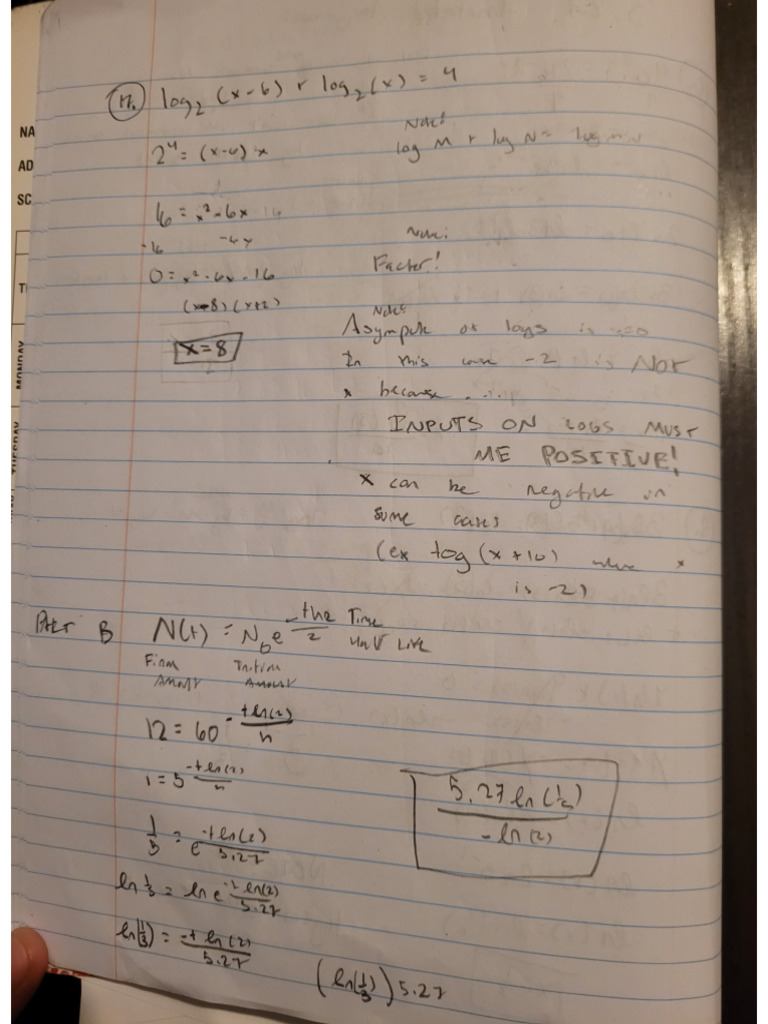 NA
AD
SC
MONDAY
TUESDAY
17. log₂ (x-6) + log₂(x) = 4
2⁴ = (x-6) x
Note!
log M + log N = log MN
16 = x² - 6x
-16 -6x
0 = x² - 6x - 16
(x-8) (x+2)
x = 8
Note:
Factor!
Note:
Asymptote of logs is x=0
In this case -2 is NOT
x because ....
INPUTS ON LOGS MUST
ME POSITIVE!
x can be negative in
some cases
(ex log (x+10) where x
is -2)
Part B N(t) = N₀e
Time
Half Live
Final Amount
Initial Amount
12 = 60 -t ln(2)/h
1 = 5 -t ln(2)/h
1/5 = e -t ln(2)/5.27
ln 1/5 = ln e -t ln(2)/5.27
ln(1/5) = -t ln(2)/5.27
(ln(1/5)) 5.27
5.27 ln(1/5)/-ln(2)